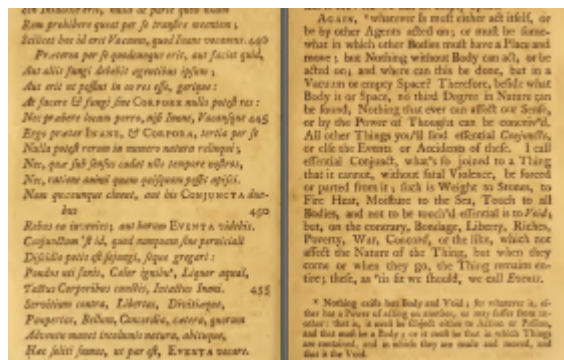 Rem prohibere queat per se transire meantem;
Scilicet hoc id erit Vacuum, quod Inane vocamus. 440
Præterea per se quodcunque erit, aut faciet quid,
Aut aliis fungi debebit agentibus ipsum;
Aut erit ut possint in eo res esse, gerique:
At facere & fungi sine CORPORE nulla potest res:
Nec præbere locum porro, nisi Inane, Vacansque 445
Ergo præter INANE, & CORPORA, tertia per se
Nulla potest rerum in numero natura relinqui;
Nec, quæ sub sensus cadat ullo tempore nostros,
Nec, ratione animi quam quisquam possit apisci.
Nam quæcunque cluent, aut his CONJUNCTA dua-
bus 450
Rebus ea invenies; aut horum EVENTA videbis.
Conjunctum 'st id, quod nunquam sine perniciali
Discidio potis est sejungi, seque gregari:
Pondus uti saxis, Calor ignibus, Liquor aquai,
Tactus Corporibus cunctis, Intactus Inani. 455
Servitium contra, Libertas, Divitiæque,
Paupertas, Bellum, Concordia, cætera, quorum
Adventu manet incolumis natura, abituque,
Hæc soliti sumus, ut par est, EVENTA vocare.
AGAIN, * whatever Is must either act itself, or
be by other Agents acted on; or must be some-
what in which other Bodies must have a Place and
move; but Nothing without Body can act, or be
acted on; and where can this be done, but in a
Vacuum or empty Space? Therefore, beside what
Body is or Space, no third Degree in Nature can
be found, Nothing that ever can affect our Sense,
or by the Power of Thought can be conceiv'd.
All other Things you'll find essential Conjuncts,
or else the Events or Accidents of these. I call
essential Conjunct, what's so joined to a Thing
that it cannot, without fatal Violence, be forced
or parted from it; such is Weight to Stones, to
Fire Heat, Moisture to the Sea, Touch to all
Bodies, and not to be touch'd essential is to Void;
but, on the contrary, Bondage, Liberty, Riches,
Poverty, War, Concord, or the like, which not
affect the Nature of the Thing, but when they
come or when they go, the Thing remains en-
tire; these, as 'tis fit we should, we call Events.
* Nothing exists but Body and Void; for whatever is, ei-
ther has a Power of acting on another, or may suffer from an-
other: that is, it must be subject either to Action or Passion,
and that must be a Body; or it must be that in which Things
are contained, and in which they are made and moved, and
that is the Void.